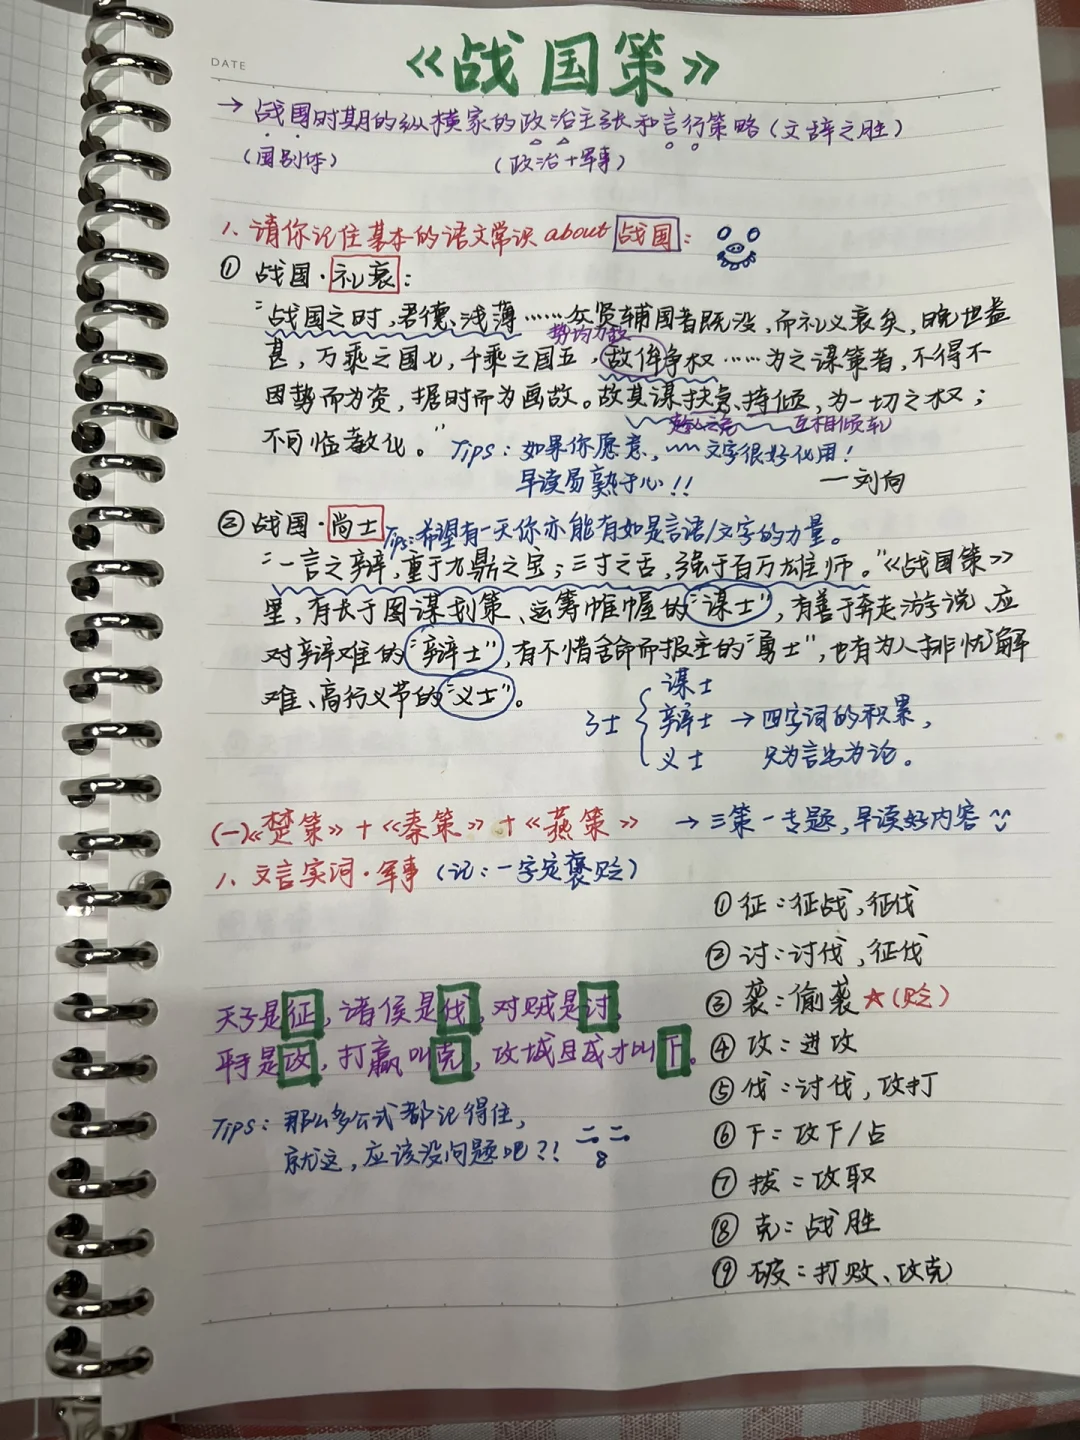 DATE
《战国策》
→ 战国时期的纵横家的政治主张和言行策略(文辞之胜)
(国别体) (政治+军事)
1、请你记住基本的语文常识 about 战国:
① 战国·礼衰:
"战国之时,君德浅薄……众贤辅国者既没,而礼义衰矣,晚世益
势均力敌
甚,万乘之国七,千乘之国五,故侔争权……为之谋策者,不得不
因势而为资,据时而为画故。故其谋扶急、持倾,为一切之权;
互相倾轧
不可临教化。" Tips:如果你愿意,﹏﹏文字很好化用!
早读局熟于心!! —刘向
② 战国·尚士 Tips:希望有一天你亦能有如是言语/文字的力量。
"一言之辩,重于九鼎之宝;三寸之舌,强于百万雄师。"《战国策》
里,有长于图谋划策、运筹帷幄的"谋士",有善于奔走游说、应
对辩难的"辩士",有不惜舍命而报主的"勇士",也有为人排忧解
难、高行义节的"义士"。
谋士
3士 { 辩士 → 四字词的积累,
义士 只为言出为论。
(一)《楚策》+《秦策》+《燕策》 → 三策一专题,早读好内容
1、文言实词·军事(记:一字定褒贬)
① 征:征战,征伐
② 讨:讨伐,征伐
③ 袭:偷袭 ★(贬)
④ 攻:进攻
⑤ 伐:讨伐,攻打
⑥ 下:攻下/占
⑦ 拔:攻取
⑧ 克:战胜
⑨ 破:打败、攻克
天子是征,诸侯是伐,对贼是讨,
平手是攻,打赢叫克,攻城且成才叫下。
Tips:那么多公式都记得住,
就这,应该没问题吧?!